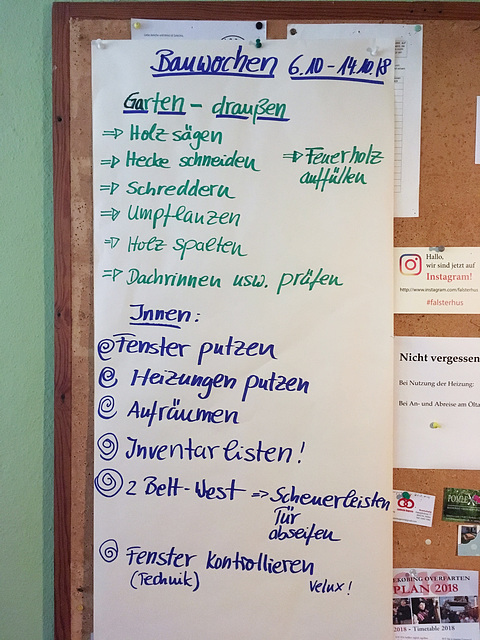 Bauwochen 6.10 - 14.10.18
Garten - draußen
⇒ Holz sägen
⇒ Hecke schneiden
⇒ Feuerholz
auffüllen
⇒ Schreddern
⇒ Umpflanzen
⇒ Holz spalten
⇒ Dachrinnen usw. prüfen
Innen:
Fenster putzen
Heizungen putzen
Aufräumen
Inventarlisten!
2 Belt-West ⇒ Scheuerleisten
Tür
abseifen
Fenster Kontrollieren
(Technik)
Velux!
Hallo,
wir sind jetzt auf
Instagram!
http://www.instagram.com/falsterhus
#falsterhus
Nicht vergessen
Bei Nutzung der Heizung:
Bei An- und Abreise am Ölta
KØBING OVERFARTEN
PLAN 2018
2018 - Timetable 2018